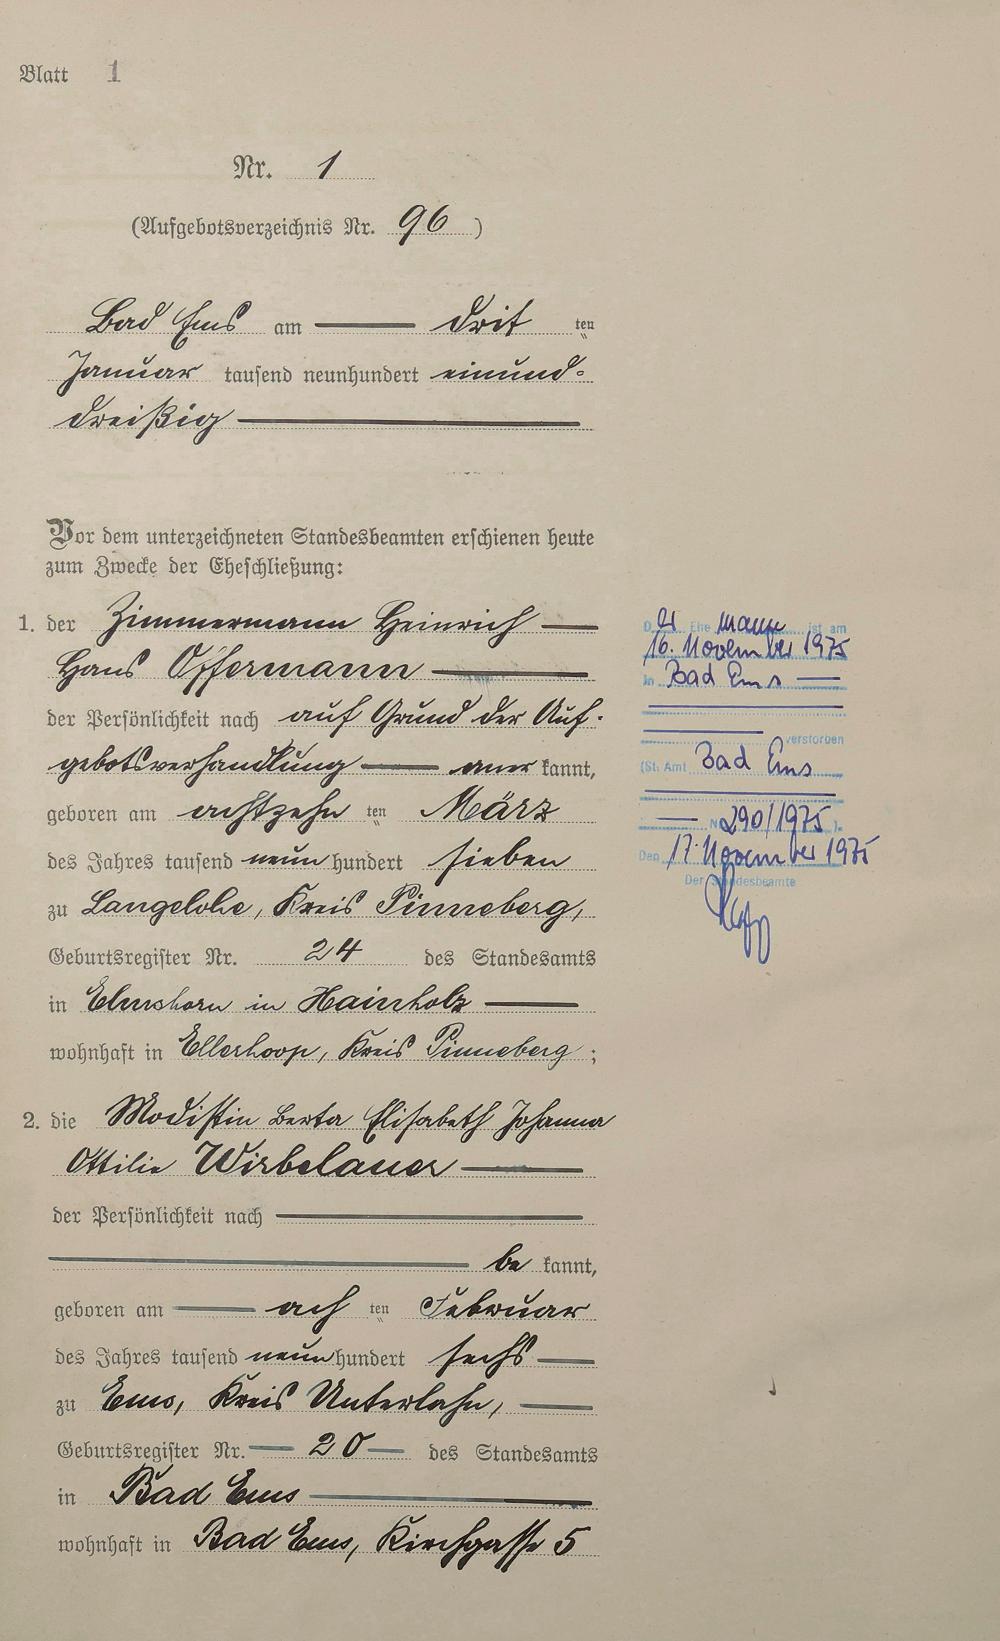 Blatt 1
Nr. 1
(Aufgebotsverzeichnis Nr. 96)
Bad Ems am — drit ten
Januar tausend neunhundert einund-
dreißig —
Vor dem unterzeichneten Standesbeamten erschienen heute
zum Zwecke der Eheschließung:
1. der Zimmermann Heinrich —
Hans Offermann —
der Persönlichkeit nach auf Grund der Auf-
gebotsverhandlung — aner kannt,
geboren am achtzehn ten März
des Jahres tausend neun hundert sieben
zu Langelohe, Kreis Pinneberg,
Geburtsregister Nr. 24 des Standesamts
in Elmshorn in Hainholz —
wohnhaft in Ellerhoop, Kreis Pinneberg;
2. die Modistin Berta Elisabeth Johanna
Ottilie Wirbelauer —
der Persönlichkeit nach —
— be kannt,
geboren am — ach ten Februar
des Jahres tausend neun hundert sechs —
zu Ems, Kreis Unterlahn, —
Geburtsregister Nr. — 20 — des Standesamts
in Bad Ems —
wohnhaft in Bad Ems, Kirchgasse 5
Der Ehemann ist am
16. November 1975
in Bad Ems —
— verstorben
(St. Amt Bad Ems
— Nr. 290/1975).
Den 17. November 1975
Der Standesbeamte